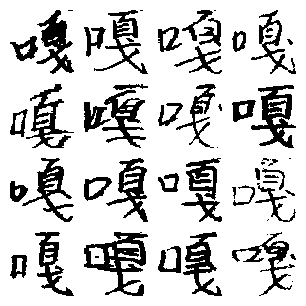 嘎嘎嘎嘎
嘎嘎嘎嘎
嘎嘎嘎嘎
嘎嘎嘎嘎